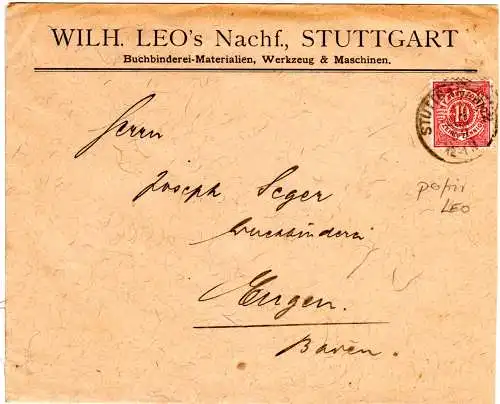 WILH. LEO's Nachf., STUTTGART
Buchbinderei-Materialien, Werkzeug & Maschinen.
STUTT
10
12-1
Herrn
Joseph Seger
Buchbinderei
perfin
LEO
Engen.
Baden.